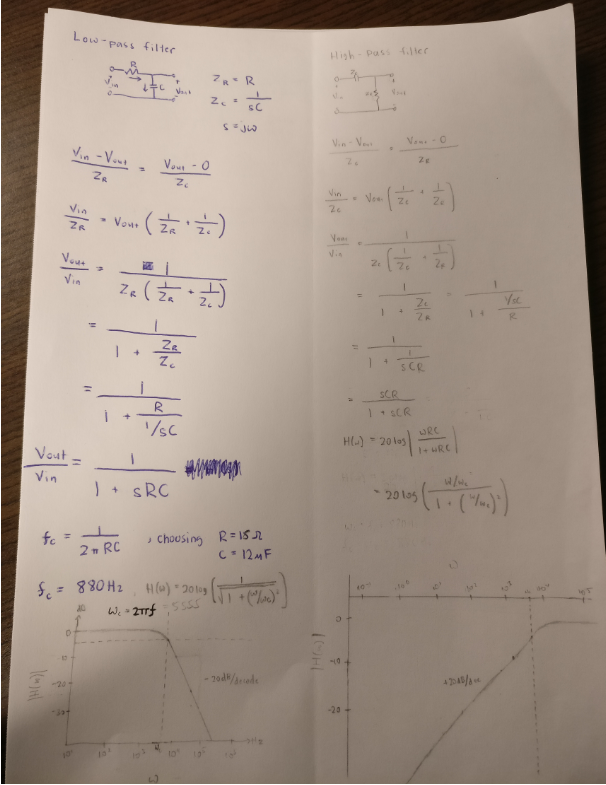 Low-pass filter
R
C
Vin
Vout
Z_R = R
Z_C = 1/sC
s = jω
(Vin - Vout)/Z_R = (Vout - 0)/Z_C
Vin/Z_R = Vout (1/Z_R + 1/Z_C)
Vout/Vin = 1/(Z_R (1/Z_R + 1/Z_C))
= 1/(1 + Z_R/Z_C)
= 1/(1 + R/(1/sC))
Vout/Vin = 1/(1 + sRC)
f_c = 1/(2πRC) , choosing R = 15Ω
C = 12μF
f_c = 880Hz , H(ω) = 20log(1/√(1 + (ω/ω_c)²))
ω_c = 2πf = 5555
0
-10
-20
-30
|H(ω)|
-20dB/decade
High-pass filter
Vin
Vout
(Vin - Vout)/Z_C = (Vout - 0)/Z_R
Vin/Z_C = Vout (1/Z_C + 1/Z_R)
Vout/Vin = 1/(Z_C (1/Z_C + 1/Z_R))
= 1/(1 + Z_C/Z_R) = 1/(1 + (1/sC)/R)
= 1/(1 + 1/sCR)
= sCR/(1 + sCR)
H(ω) = 20log|ωRC/(1+ωRC)|
= 20log((ω/ω_c)/(1 + (ω/ω_c)²))
0
-10
-20
|H(ω)|